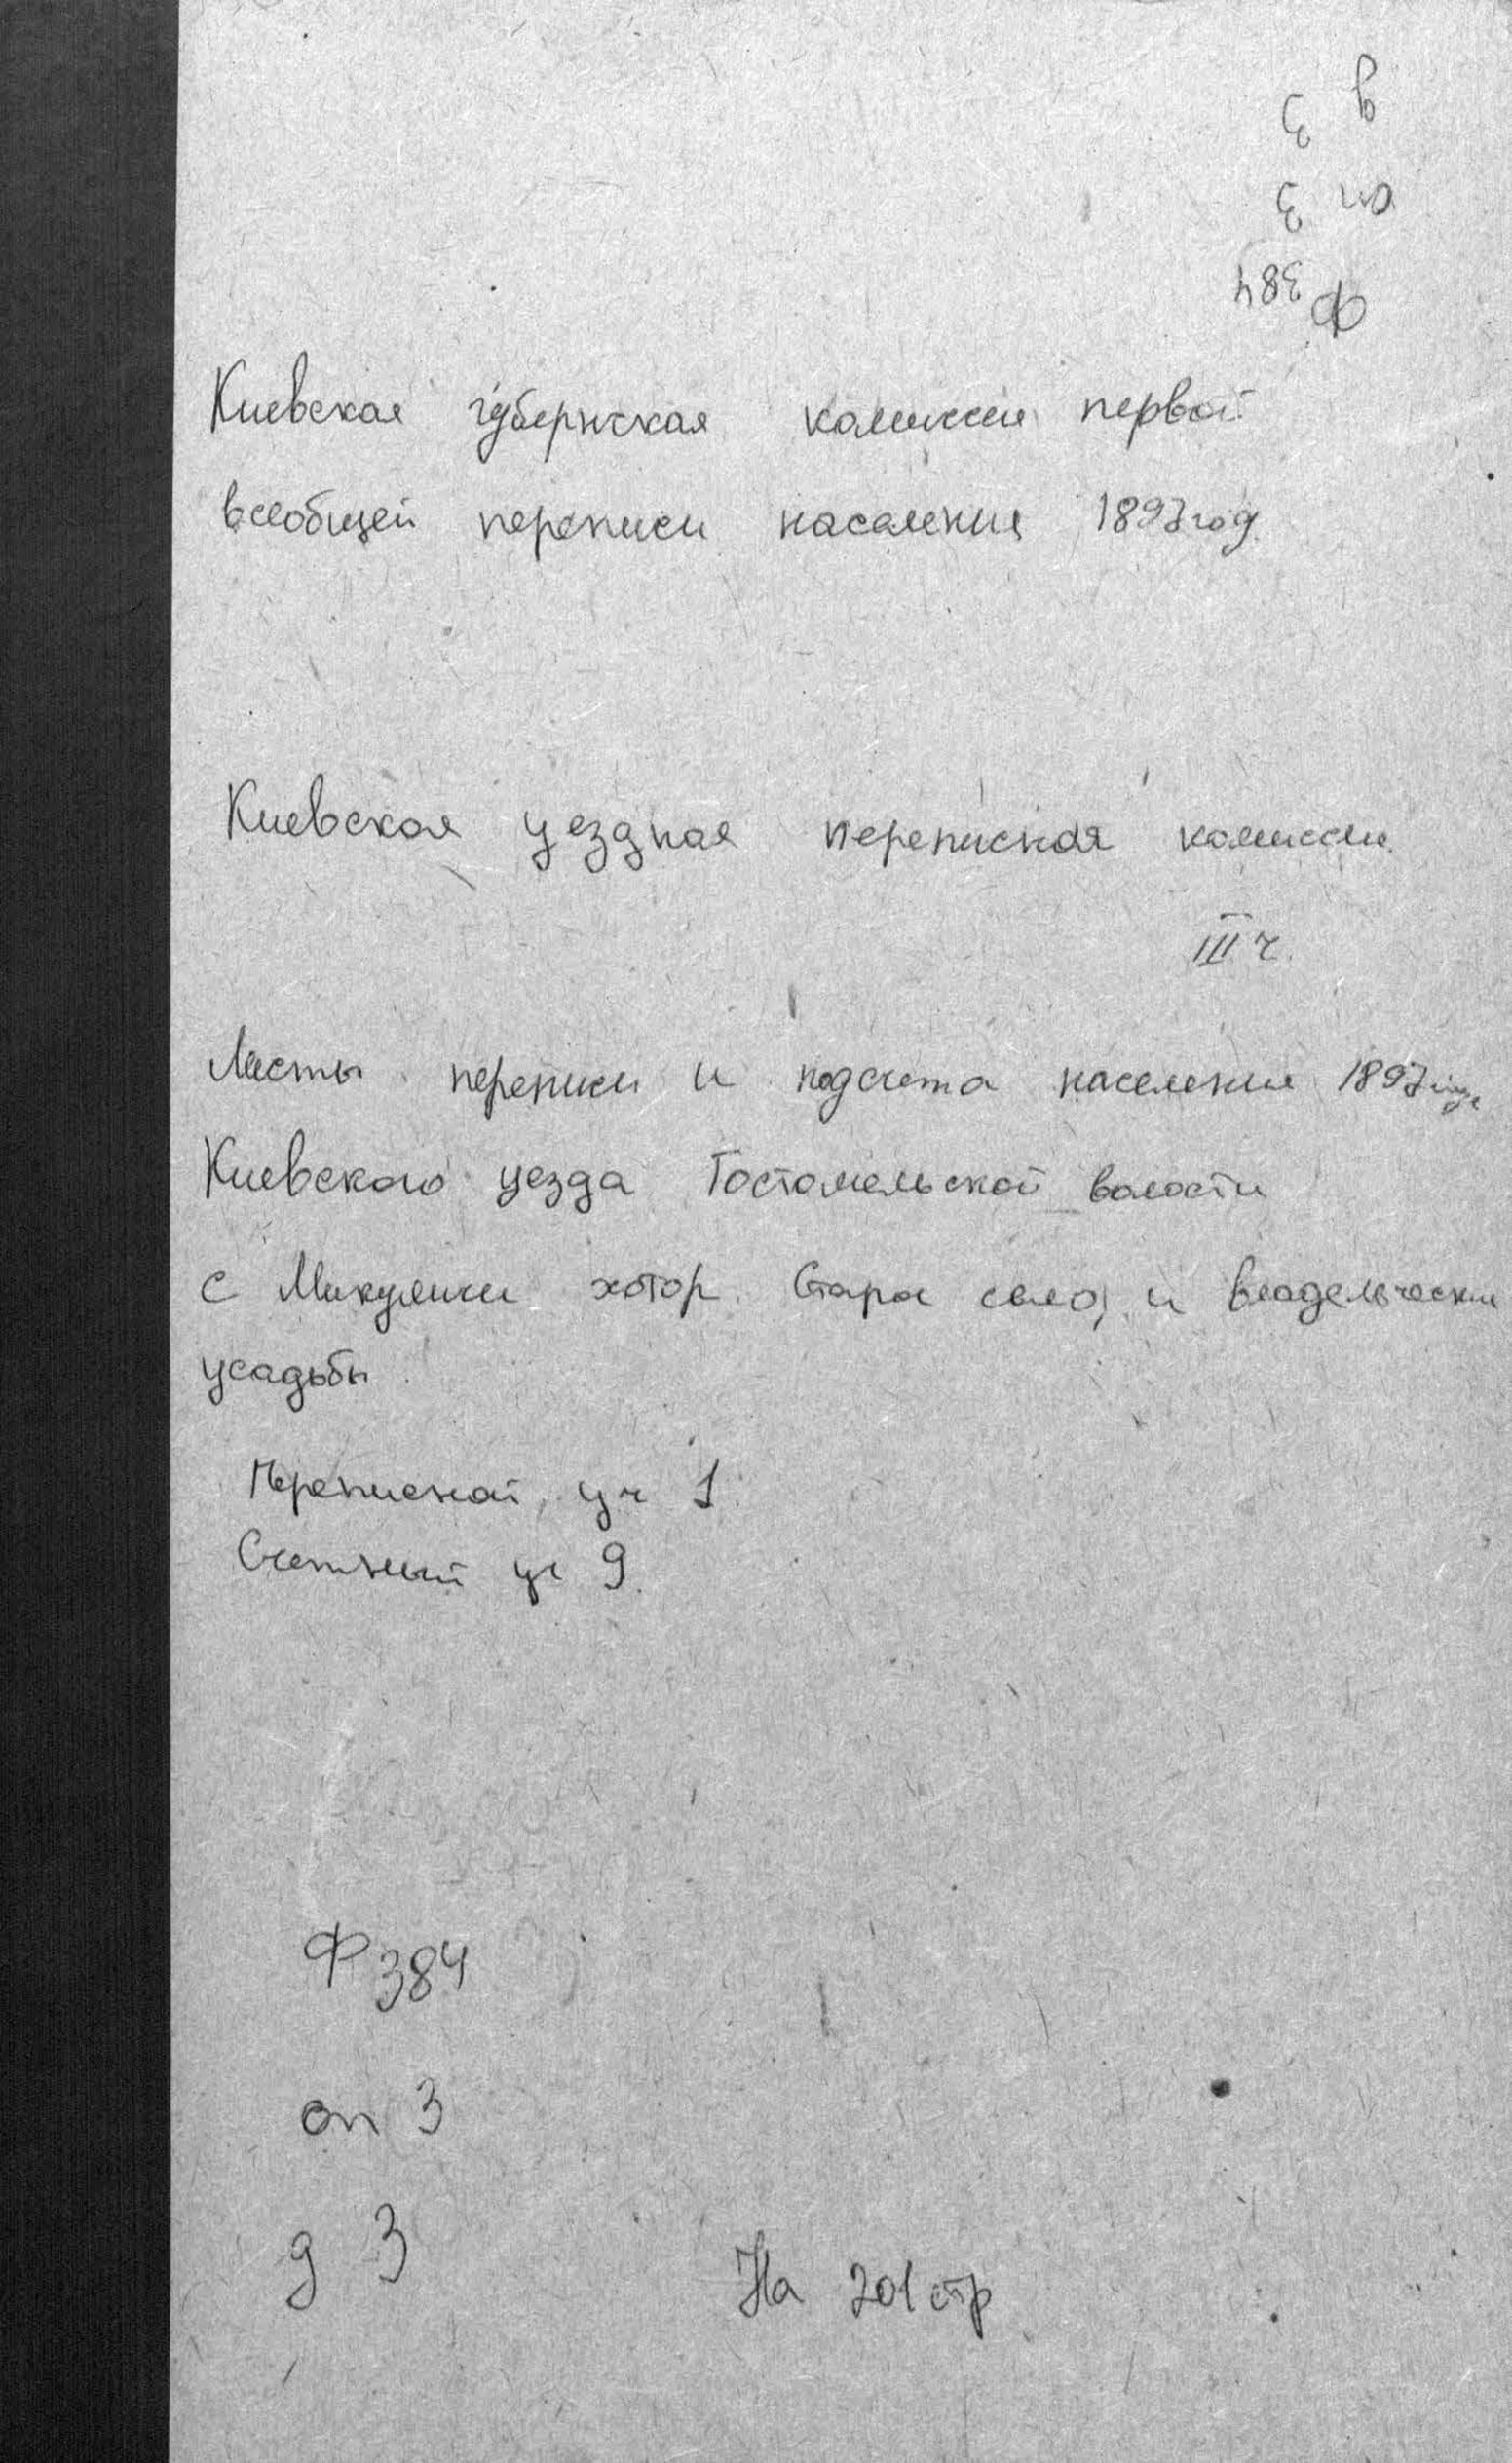 д 3
оп 3
Ф 384
Киевская губернская комиссия первой
всеобщей переписи населения 1897 год.
Киевская уездная переписная комиссия
III ч.
Листы переписи и подсчета населения 1897 года
Киевского уезда Гостомельской волости
с Микуличи хутор. Стара село, и владельческие
усадьбы.
Переписной уч 1.
Счетный уч 9.
Ф 384
оп 3
д 3
На 201 стр